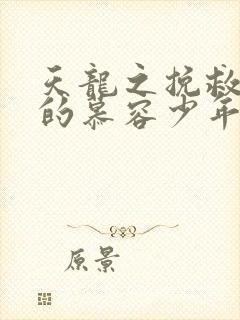 天龍之挽救
的慕容少年
原景